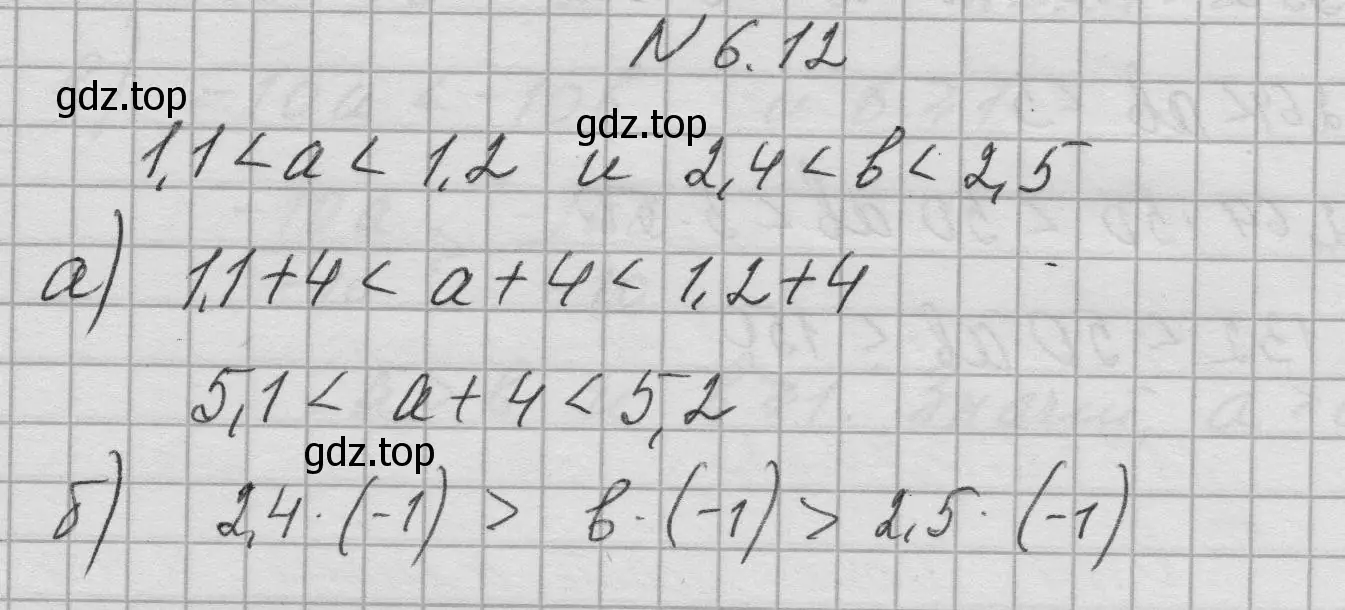 N 6.12
gdz.top
gdz.top
1,1 < a < 1,2 и 2,4 < в < 2,5
а) 1,1+4 < a+4 < 1,2+4
5,1 < a+4 < 5,2
gdz.top
б) 2,4·(-1) > в·(-1) > 2,5·(-1)